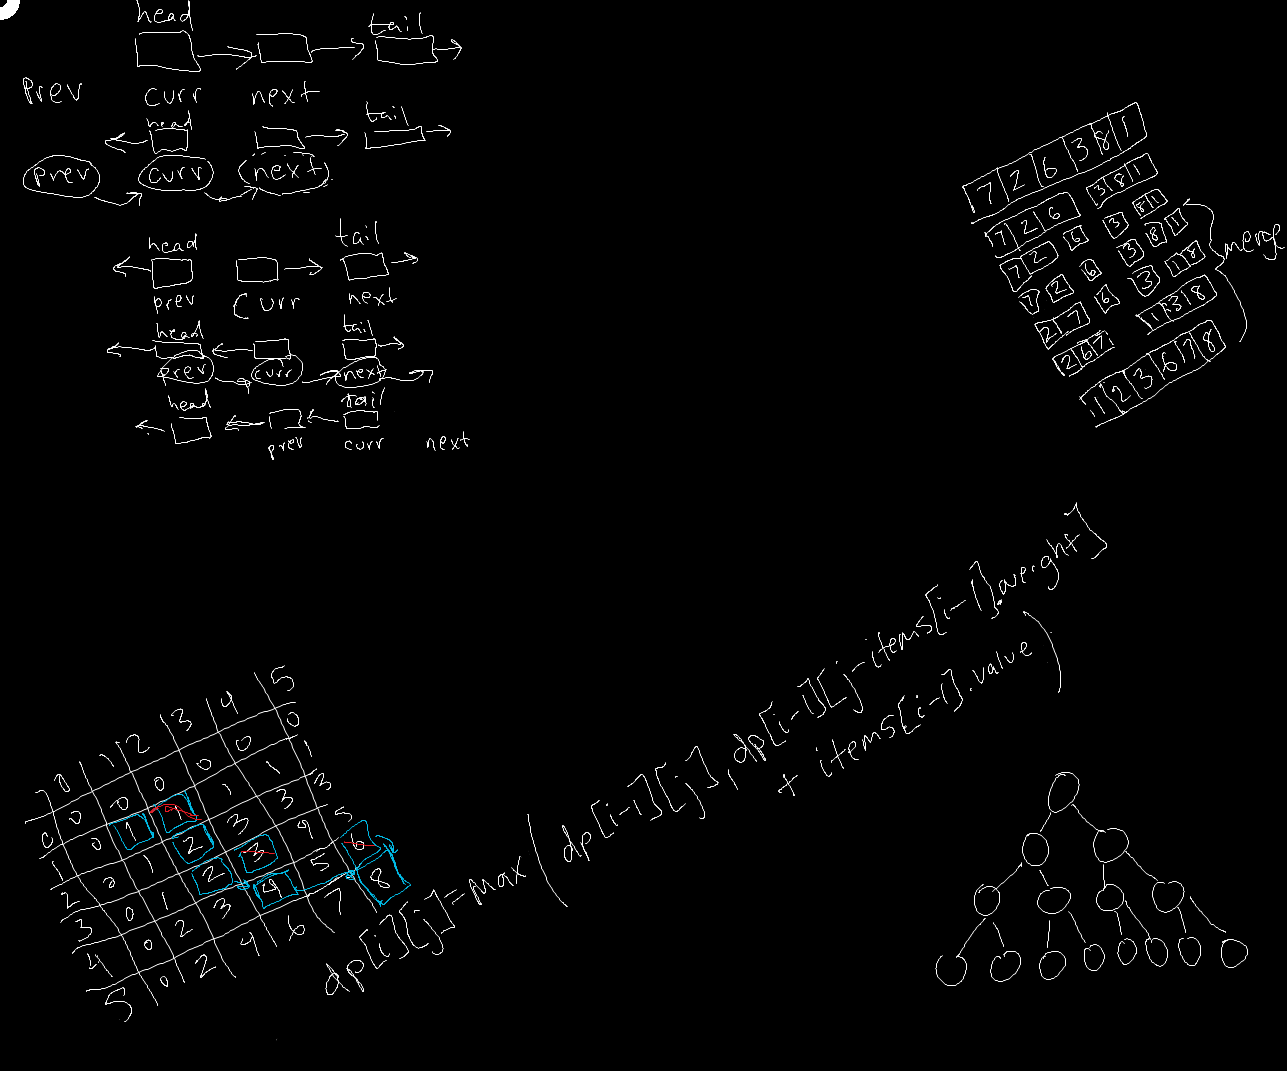 head
tail
Prev curr next
head
tail
prev curr next
head
tail
prev curr next
head
tail
prev curr next
head
tail
prev curr next
7 2 6 3 8 1
7 2 6 3 8 1
7 2 6 3 8 1
7 2 6 3 8 1
2 7 6 3 1 8
2 6 7 1 3 8
1 2 3 6 7 8
merge
0 1 2 3 4 5
0 0 0 0 0 0 0
1 0 1 1 1 1 1
2 0 1 2 3 3 3
3 0 1 2 3 4 5
4 0 2 3 4 5 6
5 0 2 4 6 7 8
dp[i][j]=max(dp[i-1][j], dp[i-1][j-items[i-1].weight]
+ items[i-1].value)